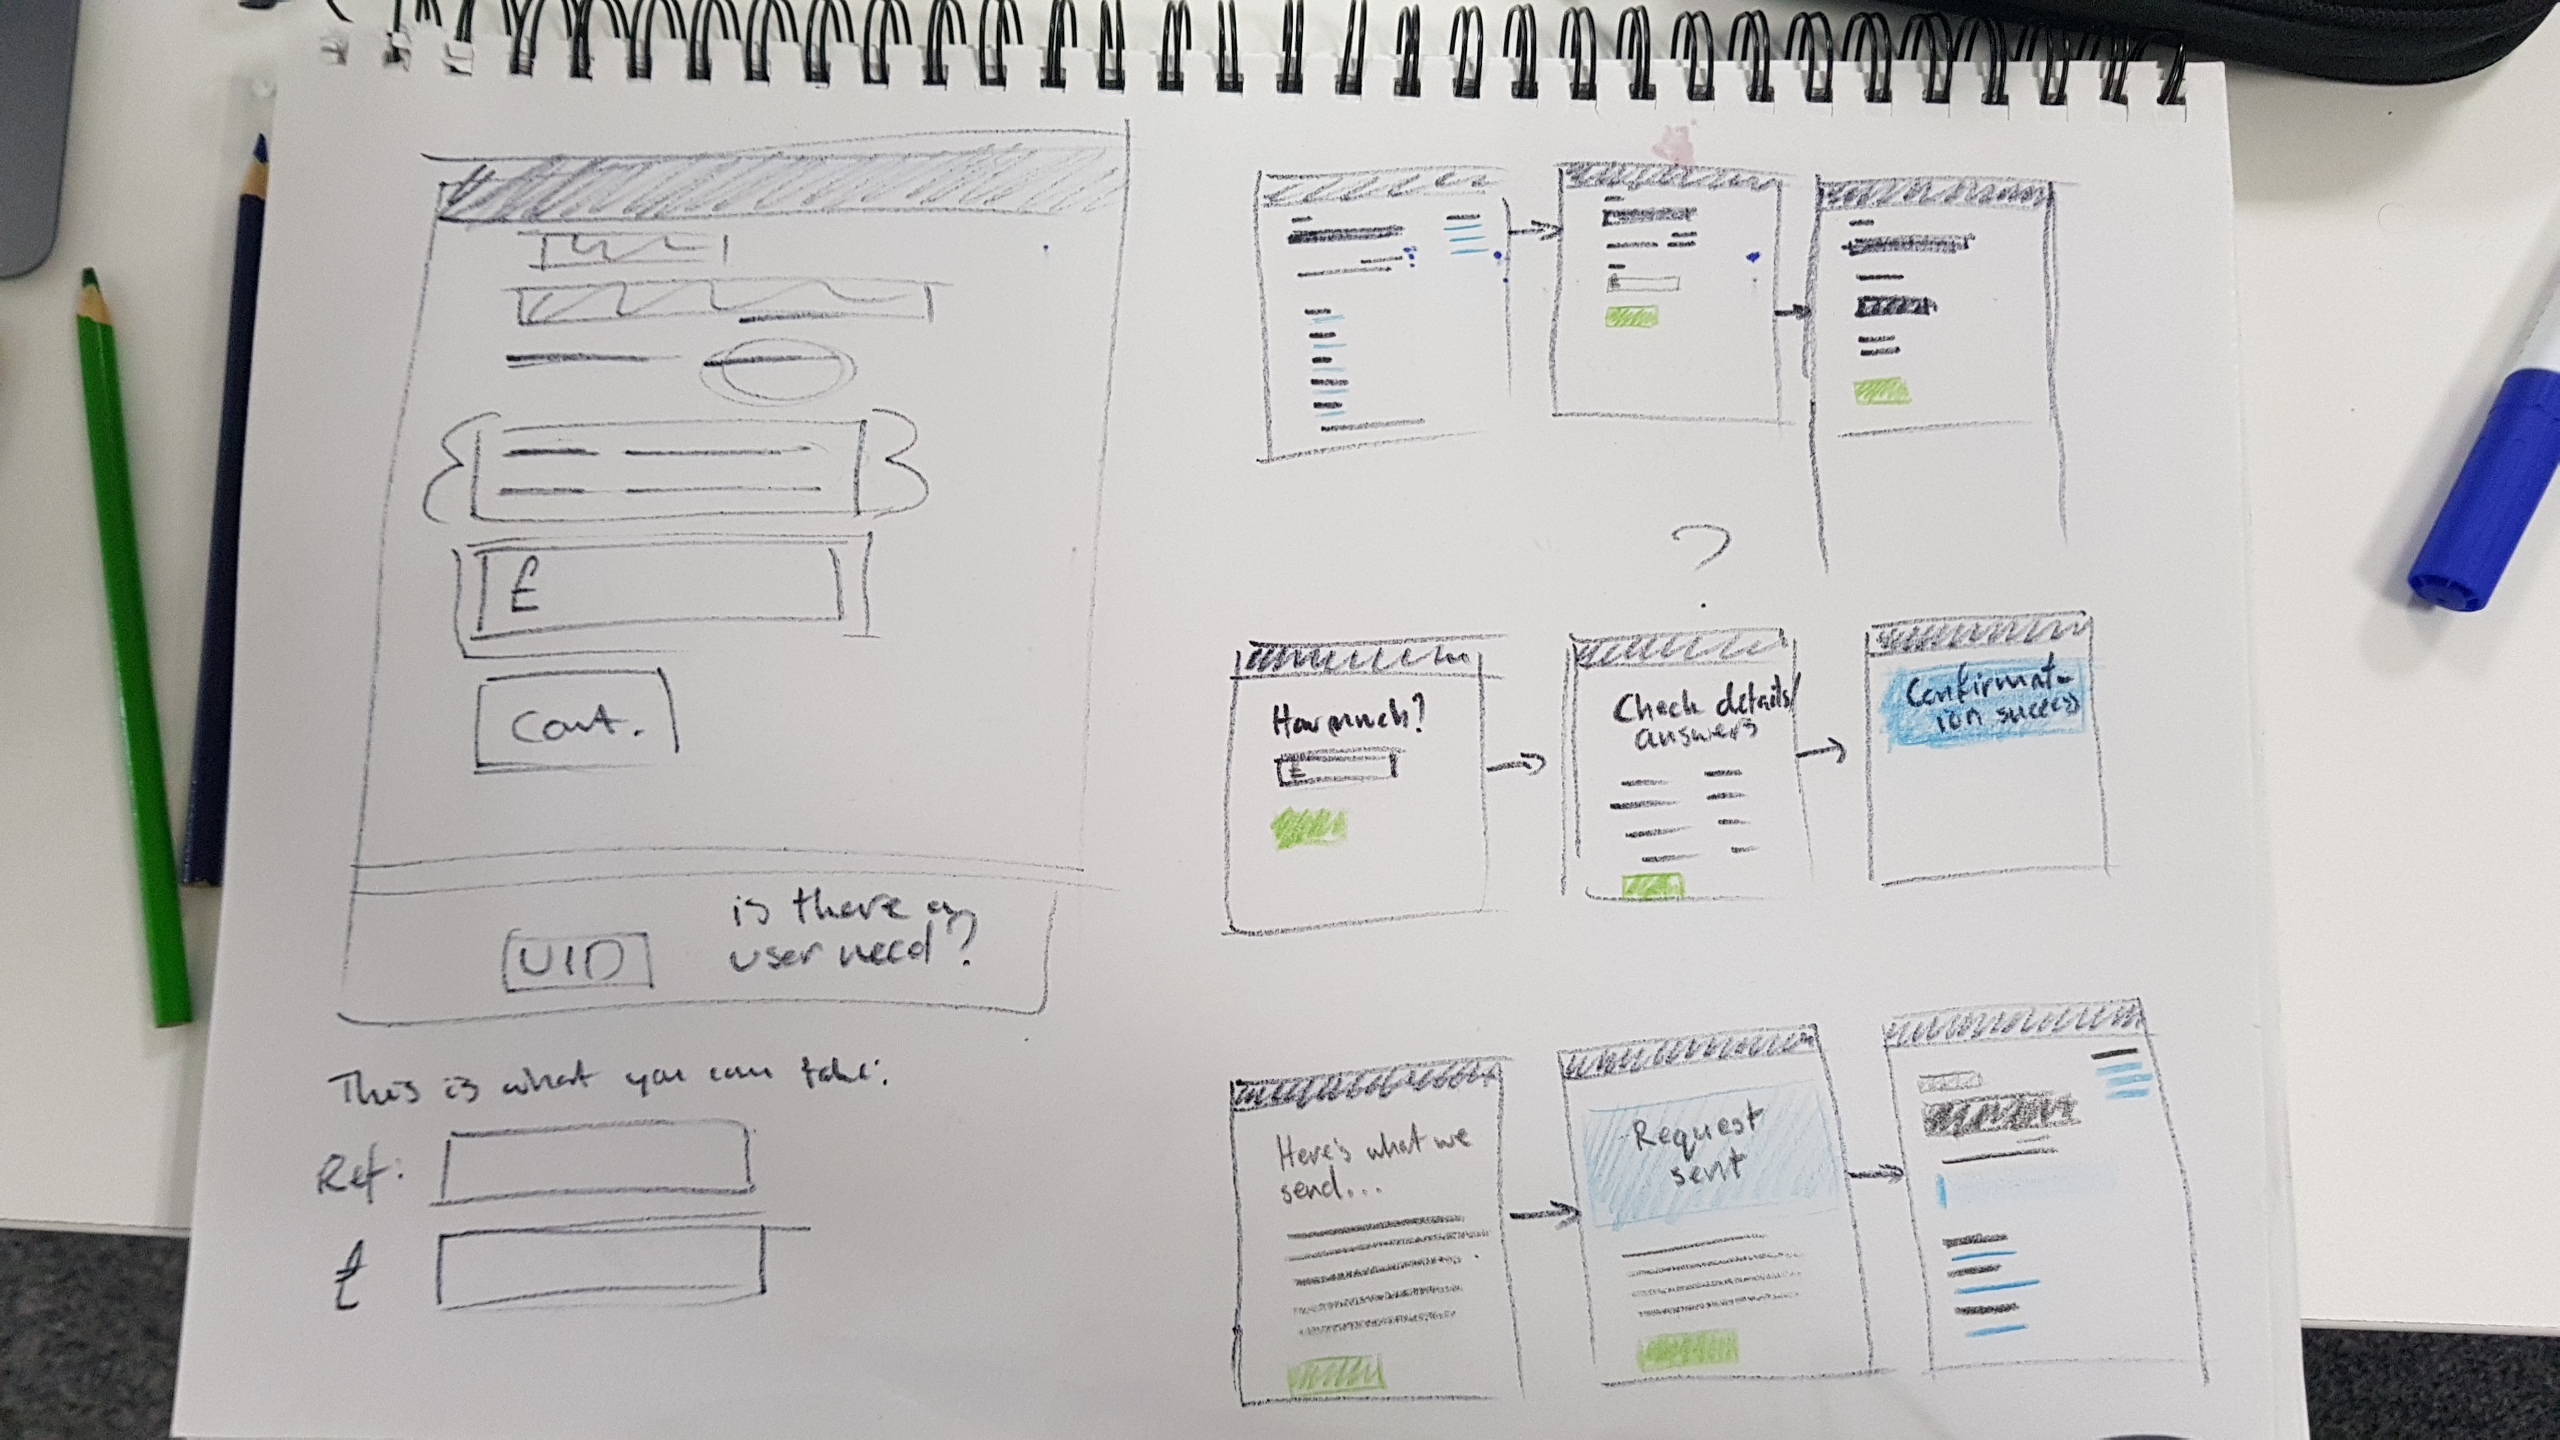 £
Cont.
UID
is there a
user need?
This is what you can take:
Ref:
£
?
How much?
£
Check details/
answers
Confirmat-
ion success
Here's what we
send...
Request
sent